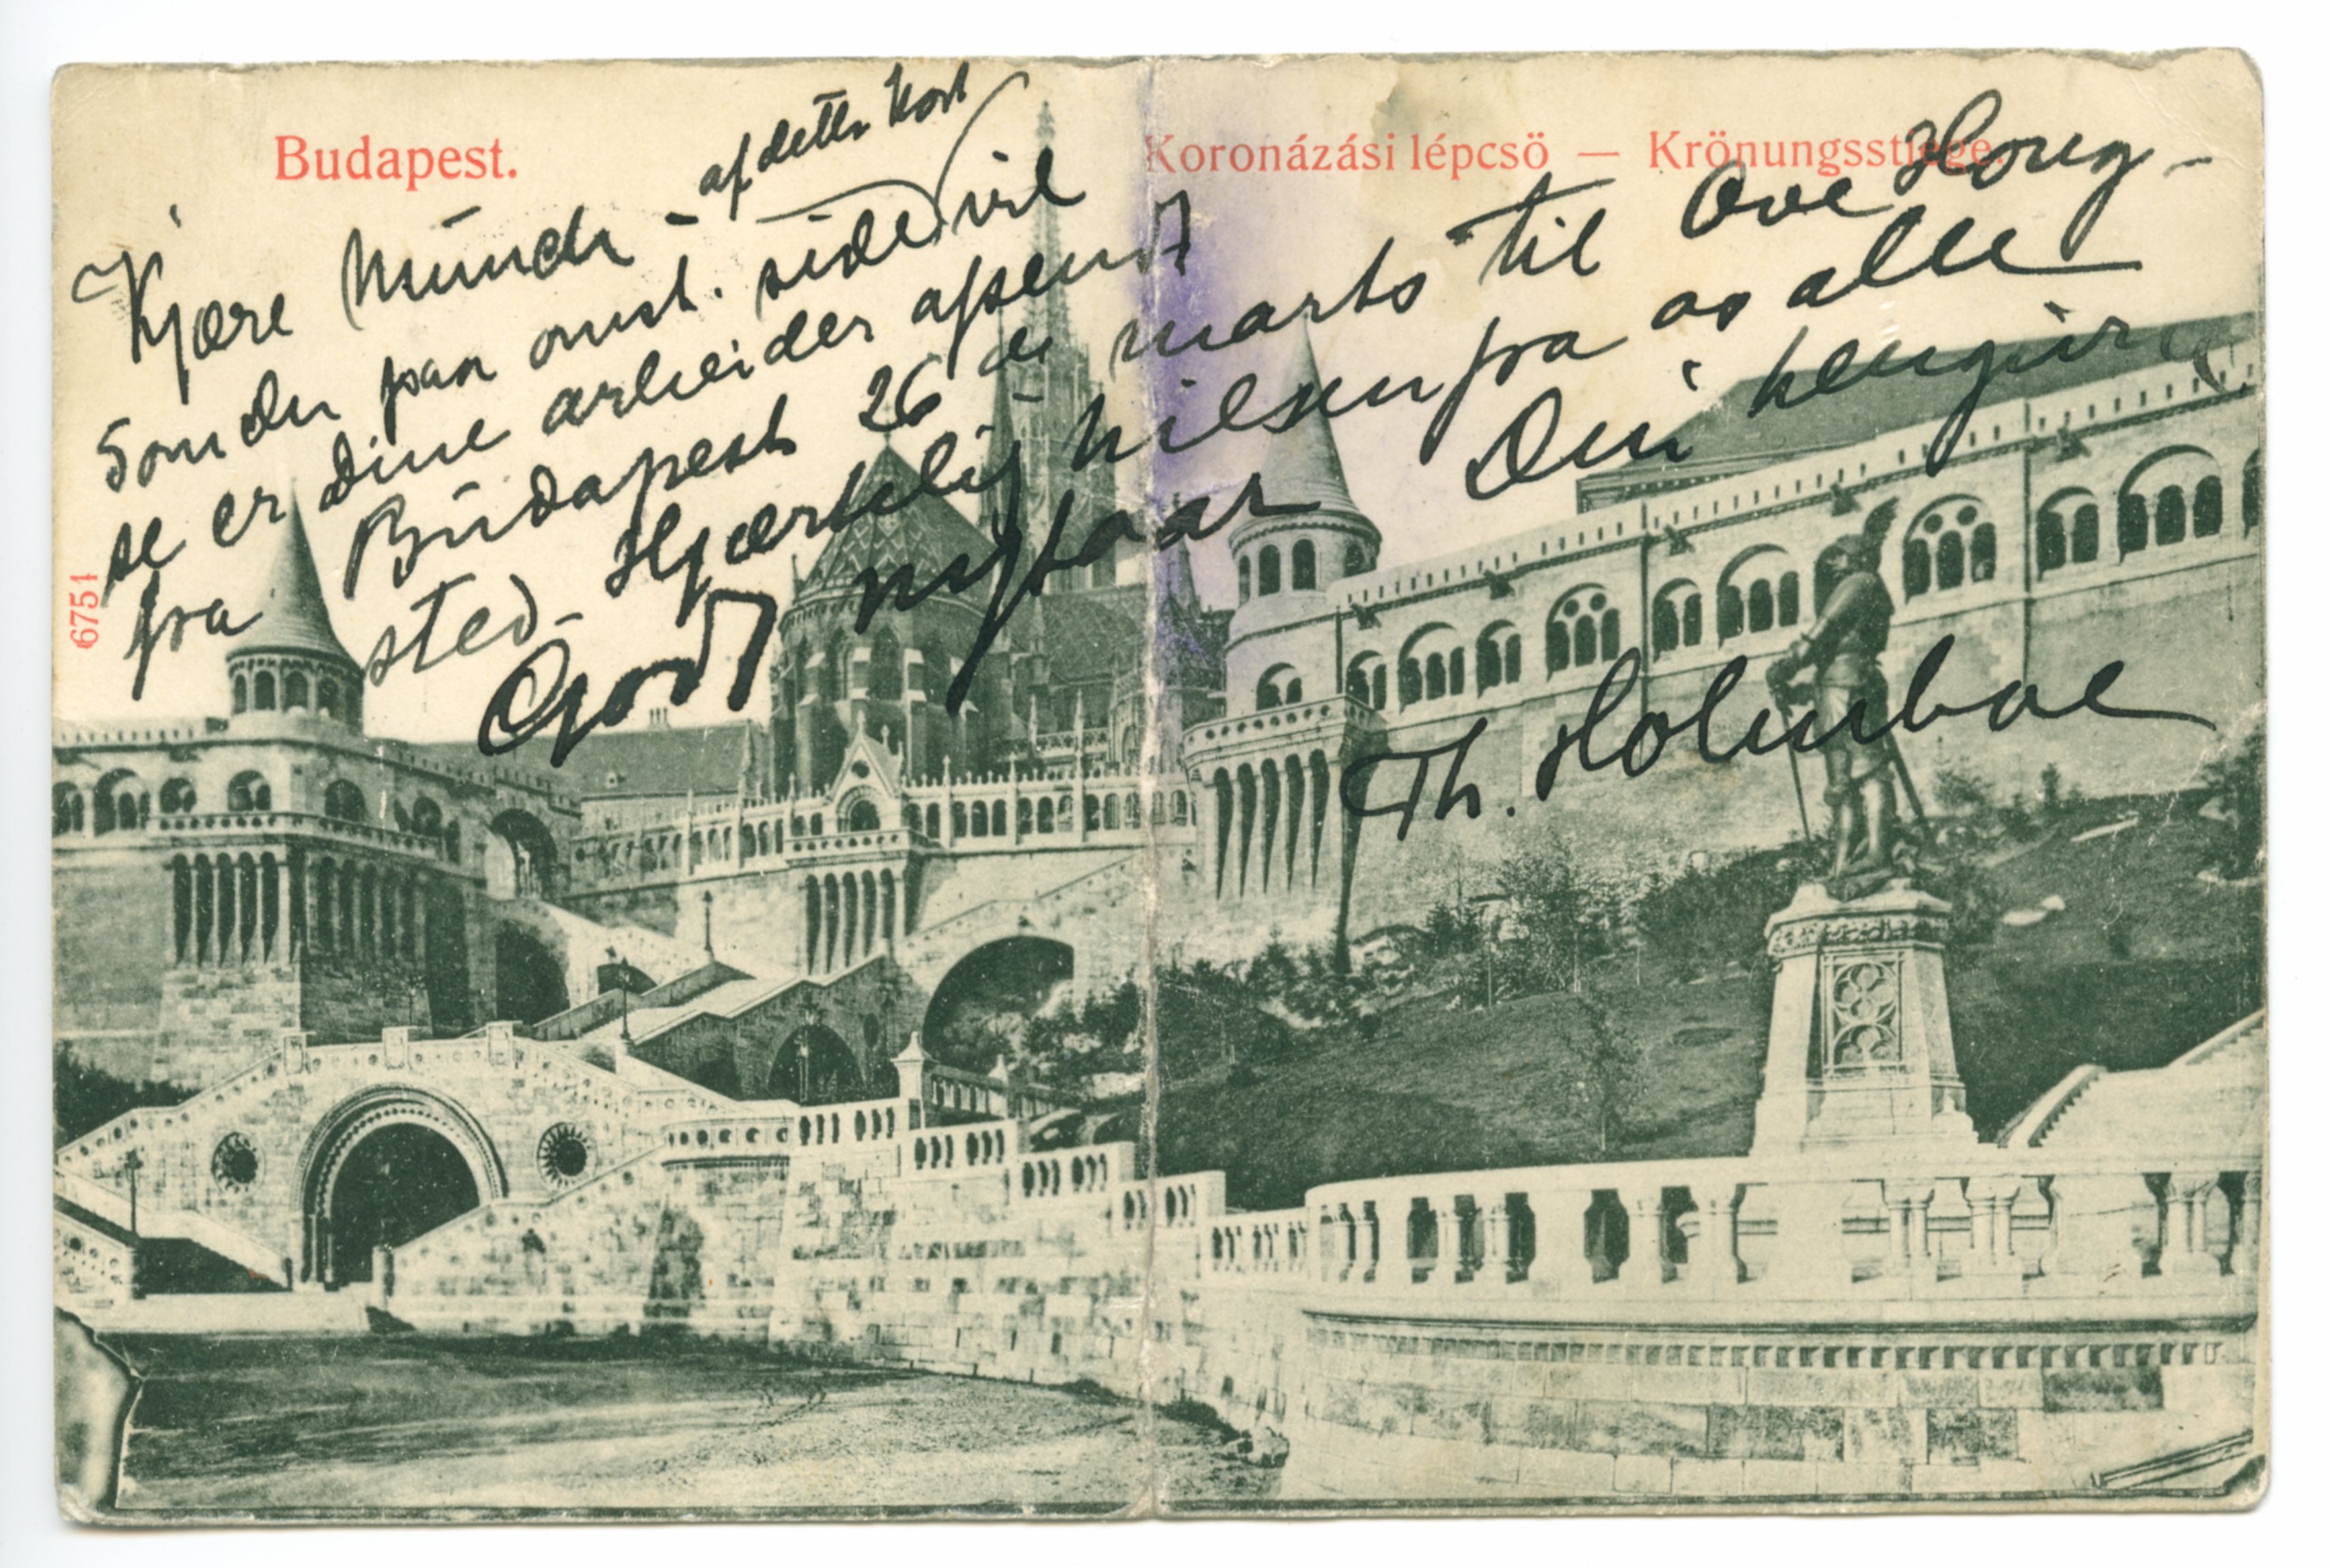 Budapest.
Koronázási lépcsö — Krönungsstiege.
6751
Kjære Münch - af dette Kort
Som du paa omst. side vil
se er dine arbeider afsendt
fra Büdapest 26de marts til Ove Houg-
sted. Hjærtelig hilsen fra os alle
Godt nytaar Din hengivne
Th. Holmboe